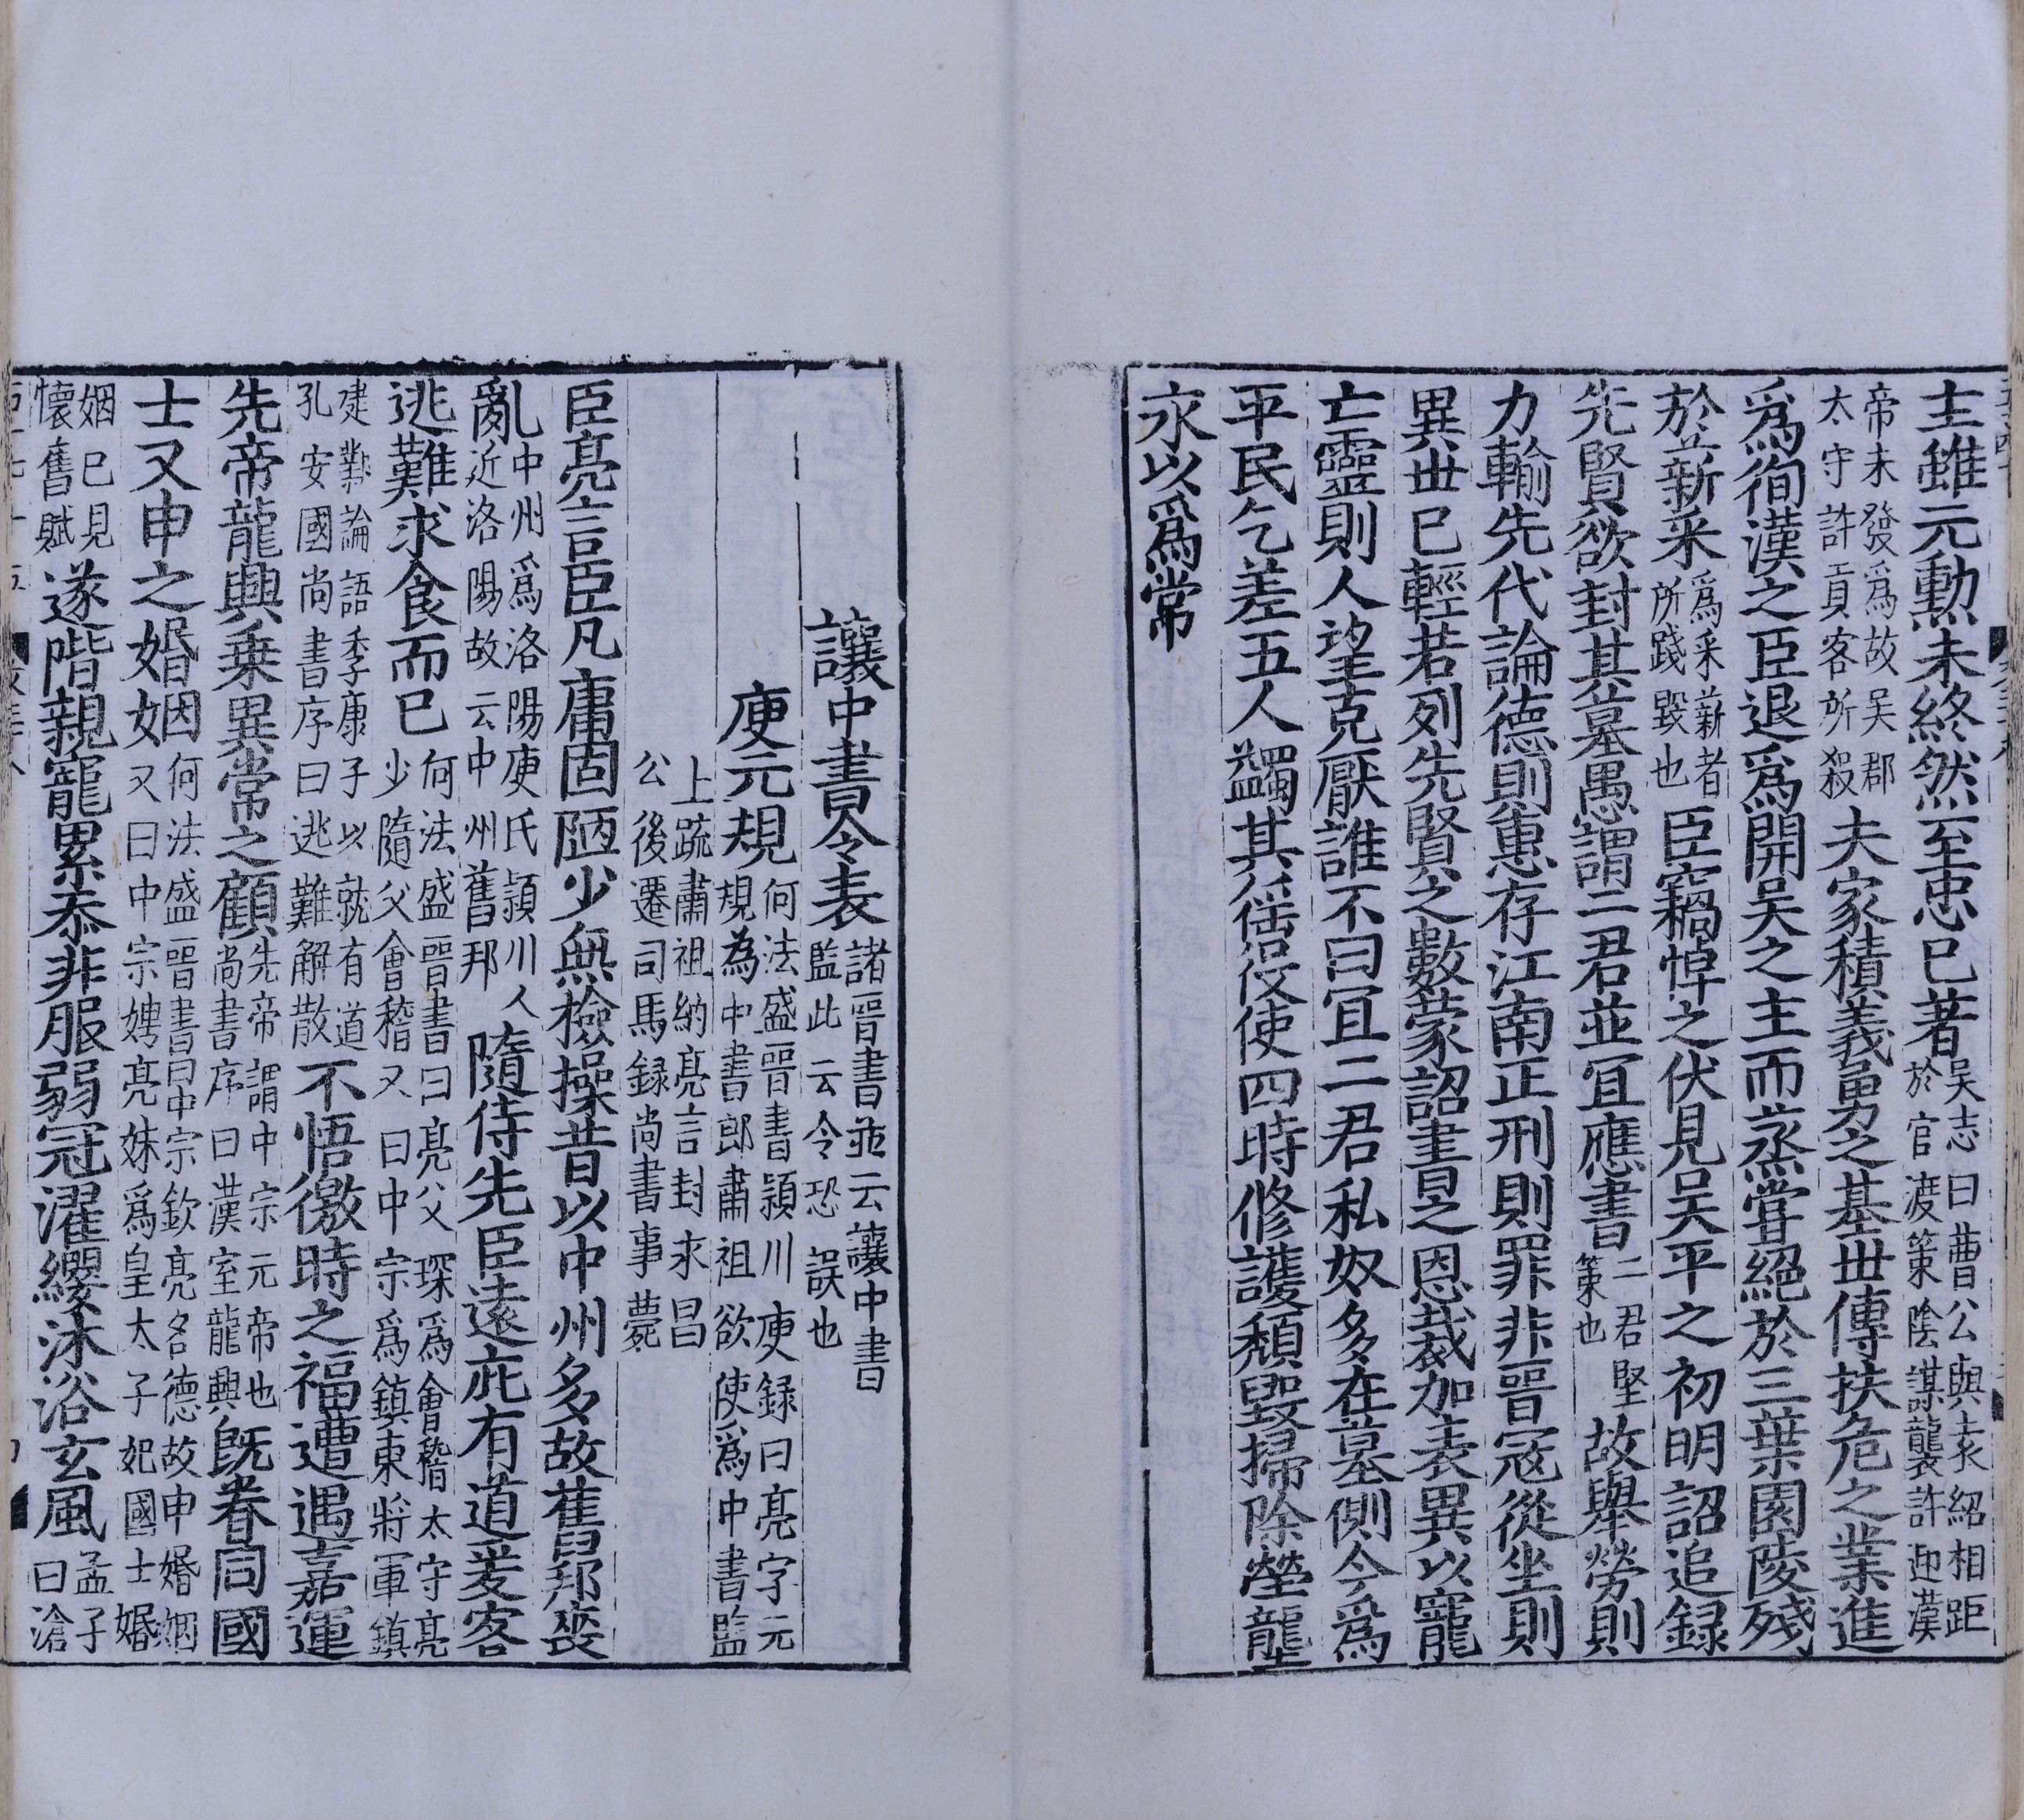 主雖元勲未終然至忠已著吳志曰曹公與袁紹相距
於官渡策陰謀襲許迎漢
帝未發爲故吳郡
太守許貢客所殺夫家積義勇之基世傳扶危之業進
爲徇漢之臣退爲開吳之主而蒸甞絕於三葉園陵殘
於薪采爲采薪者
所踐毀也臣竊悼之伏見吳平之初明詔追録
先賢欲封其墓愚謂二君並宜應書二君堅
策也故舉勞則
力輸先代論德則惠存江南正刑則罪非晉冦從坐則
異世已輕若列先賢之數蒙詔書之恩裁加表異以寵
亡靈則人望克厭誰不曰宜二君私奴多在墓側今爲
平民乞差五人蠲其徭役使四時修護頹毀掃除塋壟
永以爲常
讓中書令表諸晉書並云讓中書
監此云令恐誤也
庾元規何法盛晉書潁川庾録曰亮字元
規為中書郎肅祖欲使爲中書監
上疏肅祖納亮言封永昌
公後遷司馬録尚書事薨
臣亮言臣凡庸固陋少無檢操昔以中州多故舊邦喪
亂中州爲洛陽庾氏潁川人
近洛陽故云中州舊邦隨侍先臣遠庇有道爰客
逃難求食而已何法盛晉書曰亮父琛爲會稽太守亮
少隨父會稽又曰中宗爲鎮東將軍鎮
建鄴論語季康子以就有道
孔安國尚書序曰逃難解散不悟徼時之福遭遇嘉運
先帝龍興乗異常之顧先帝謂中宗元帝也
尚書序曰漢室龍興旣眷同國
士又申之婚姻何法盛晉書曰中宗欽亮名德故申婚姻
又曰中宗娉亮妹爲皇太子妃國士婚
姻已見
懷舊賦遂階親寵累忝非服弱冠濯纓沐浴玄風孟子
曰滄